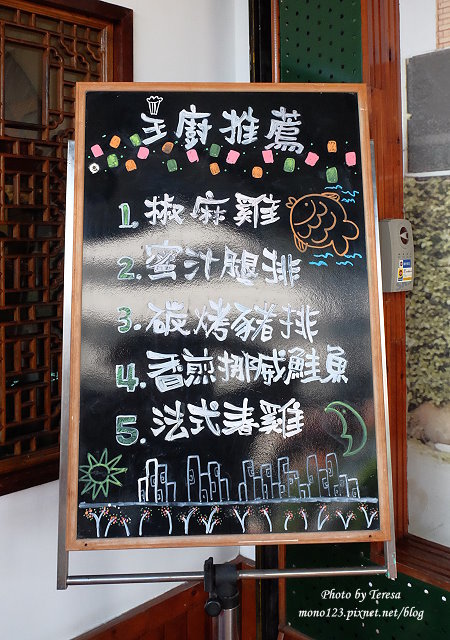 主廚推薦
1. 椒麻雞
2. 蜜汁腿排
3. 碳烤豬排
4. 香煎挪威鮭魚
5. 法式春雞
Photo by Teresa
mono123.pixnet.net/blog